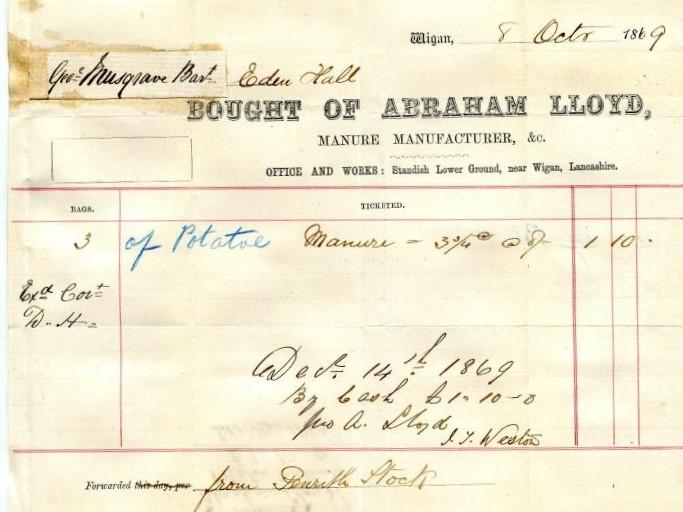 Wigan, 8 Octr 1869
Geo: Musgrave Bart Eden Hall
BOUGHT OF ABRAHAM LLOYD,
MANURE MANUFACTURER, &c.
OFFICE AND WORKS: Standish Lower Ground, near Wigan, Lancashire.
BAGS. TICKETED.
3 of Potatoe Manure = 3¾ @ 8/- 1 10 -
Exd Cort
D. H=
Decr. 14th 1869
By Cash £1-10-0
pro A. Lloyd
J. T. Weston
Forwarded this day, per from Penrith Stock